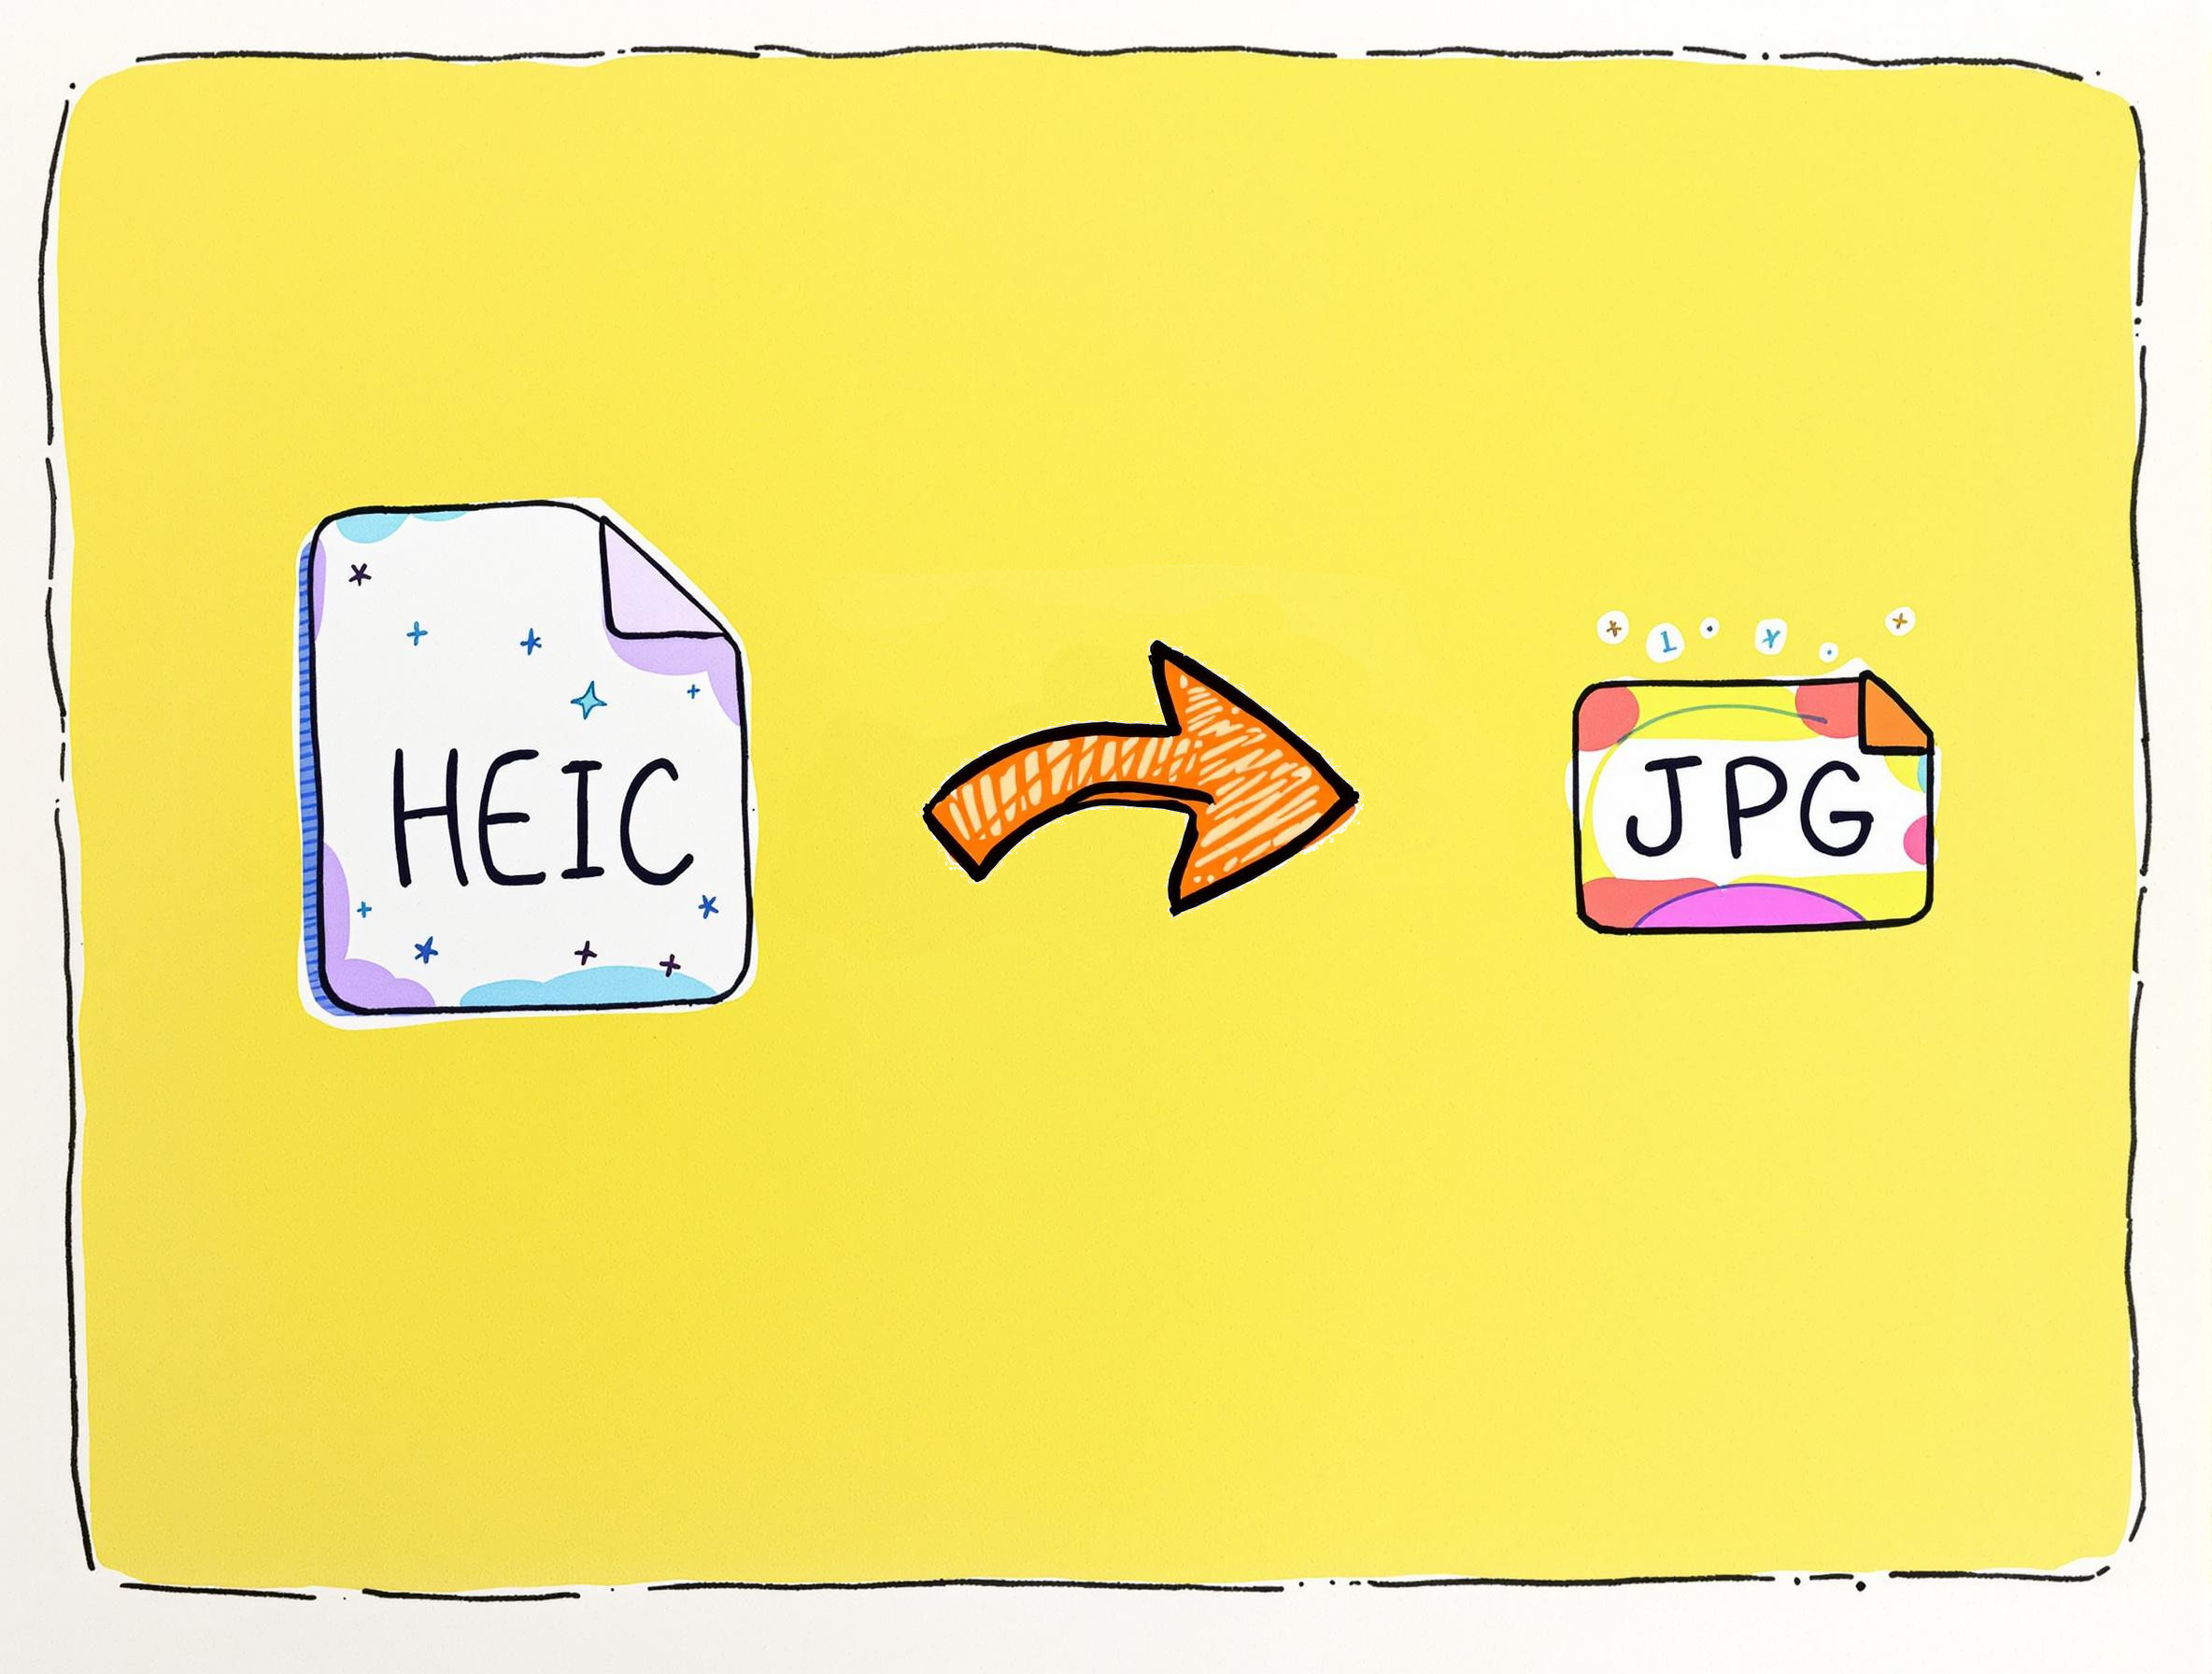 HEIC
JPG